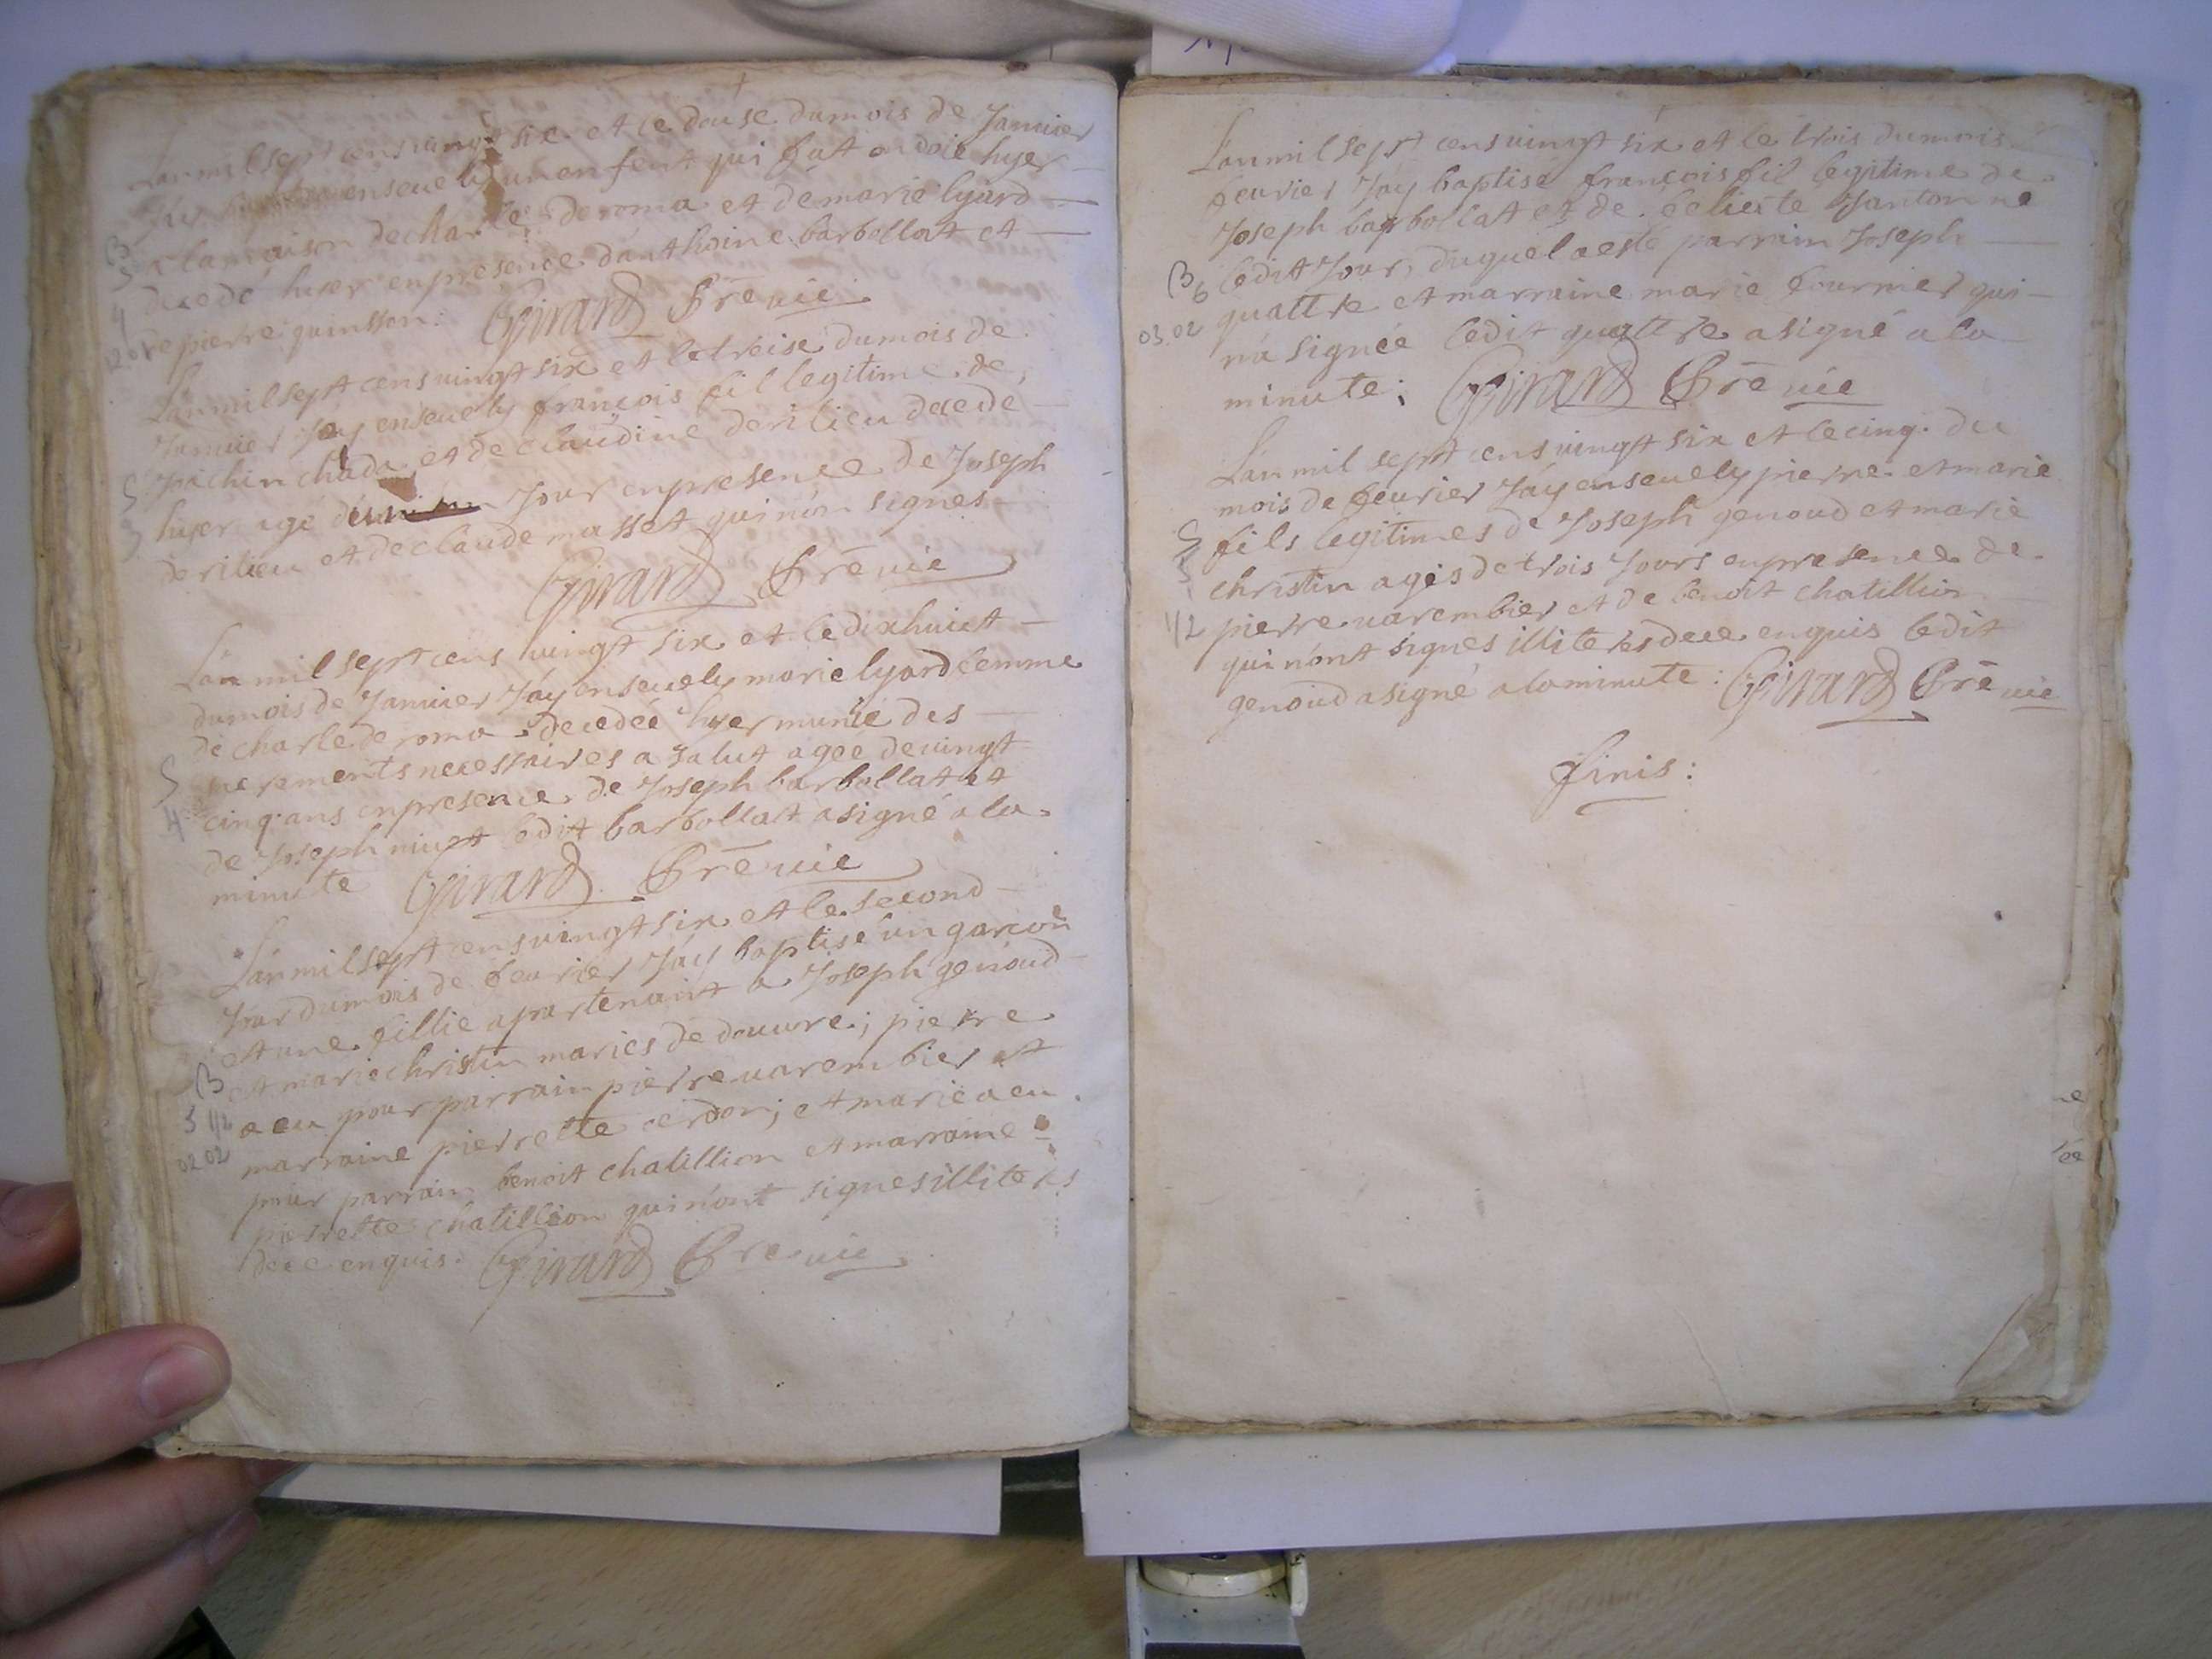 Lan mil sept cens vingt six et le douse du mois de Januier
Jay enseuely un enfent qui fut ondoié hyer
a la maison de charle deroma et de marie lyard
decedé hyer en presence danthoine barbollat et
de pierre quinsson: Girard Prē uic
B
S
4
Lan mil sept cens vingt six et le treise du mois de
Januier Jay enseuely françois fil legitime de
chada et de claudine derilieu decedé
hyer agé dun Jour en presence de Joseph
derilieu et de claude masset qui nón signes
Girard Prē uic
S
3
Lan mil sept cens vingt six et le dix huict
du mois de Januier Jáy enseuely marie lyard femme
de charle deroma decedeé hyer munie des
sacrements necessaires a salut agee de vingt
cinq ans en presence de Joseph barbollat et
de Joseph ledit barbollat a signé a la
minute Girard Prē uic
S
4
Lán mil sept cens vingt six et le second
Jour du mois de feurier Jáy baptisé un garcon
et une fillie apartenant a Joseph genoud
et marie christin maries de douure; pierre
a eu pour parrain pierre uarembier et
marraine pierrette cerdon; et marie a eu
pour parrain benoit chatillion et marraine
pierrette chatillion qui nónt signes illiteres
dece enquis. Girard Prē uic
B
3 1/2
02 02
Lan mil sept cens vingt six et le trois du mois
feurier Jáy baptisé françois fil legitime de
Joseph barbollat et de Janton ne
ledit Jour, duquel a esté parrain Joseph
quattre et marraine marie fournier qui
ná signée ledit quattre a signé a la
minute; Girard Prē uic
B
6
03.02
Lán mil sept cens vingt six et le cinq du
mois de feurier Jáy enseuely pierre et marie
fils legitimes de Joseph genoud et marie
christin agés de trois Jours en presence de
pierre uarembier et de benoit chatillion
qui nónt signés illiteres dece enquis ledit
genoud a signé a la minute: Girard Prē uic
S
1/2
finis: